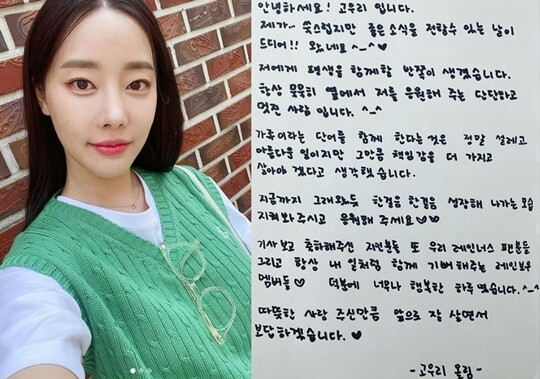 안녕하세요! 고우리 입니다.
제가~ 쑥스럽지만 좋은 소식을 전할수 있는 날이
드디어!! 왔네요 ^_^ ♥
저에게 평생을 함께할 반쪽이 생겼습니다.
항상 묵묵히 옆에서 저를 응원해 주는 단단하고
멋진 사람 입니다. ^_^
가족이라는 단어를 함께 한다는것은 정말 설레고
아름다운 일이지만 그만큼 책임감을 더 가지고
살아야 겠다고 생각했습니다.
지금까지 그래왔듯 한걸음 한걸음 성장해 나가는 모습
지켜봐주시고 응원해 주세요♡♡
기사 보고 축하해주신 지인분들 또 우리 레인너스 팬분들
그리고 항상 내 일처럼 함께 기뻐해주는 레인보우
멤버들♡ 덕분에 너무나 행복한 하루 였습니다. ^_^
따뜻한 사랑 주신만큼 앞으로 잘 살면서
보답하겠습니다. ♥
- 고우리 올림 -